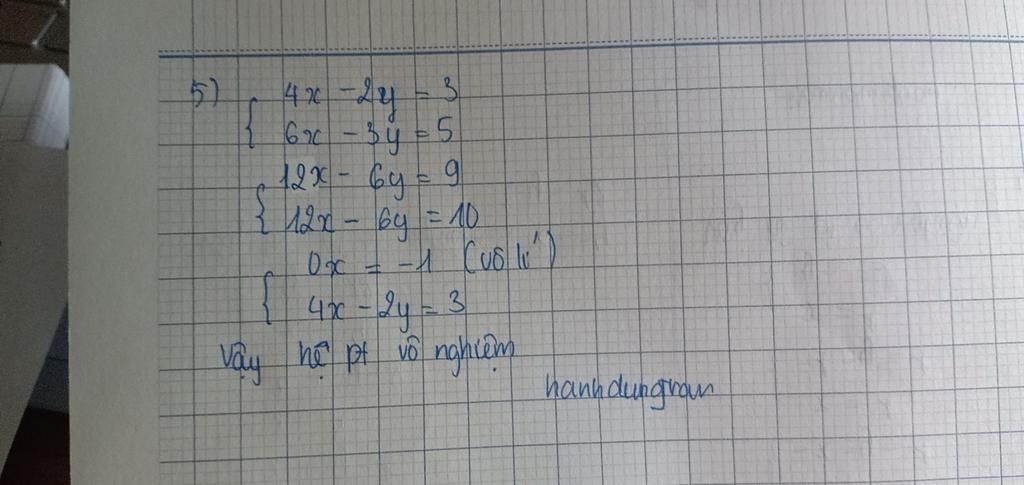 5) { 4x - 2y = 3
6x - 3y = 5
{ 12x - 6y = 9
12x - 6y = 10
{ 0x = -1 (vô lí)
4x - 2y = 3
Vậy hệ pt vô nghiệm
hanhdungtran